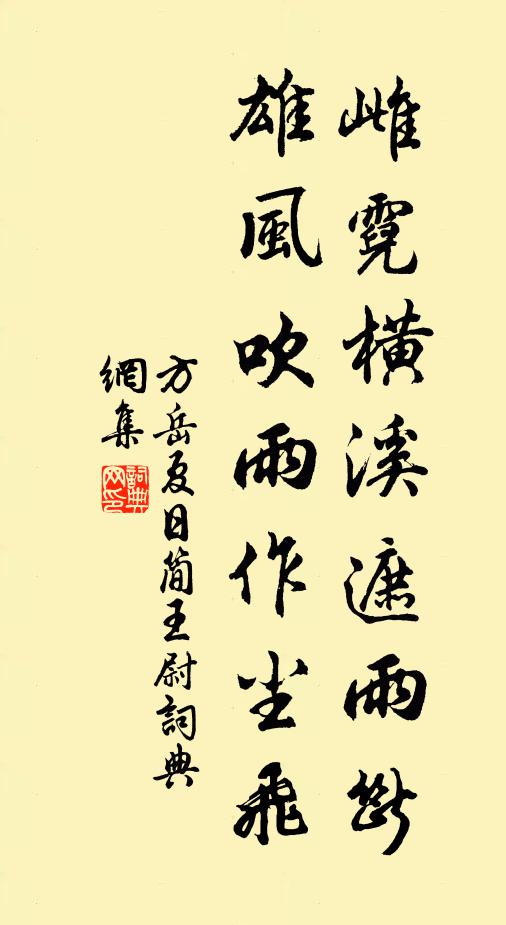 雌霓橫溪遮雨斷
雄風吹雨作尘飛
方岳夏日簡王尉詞典
網集
詞典
网印